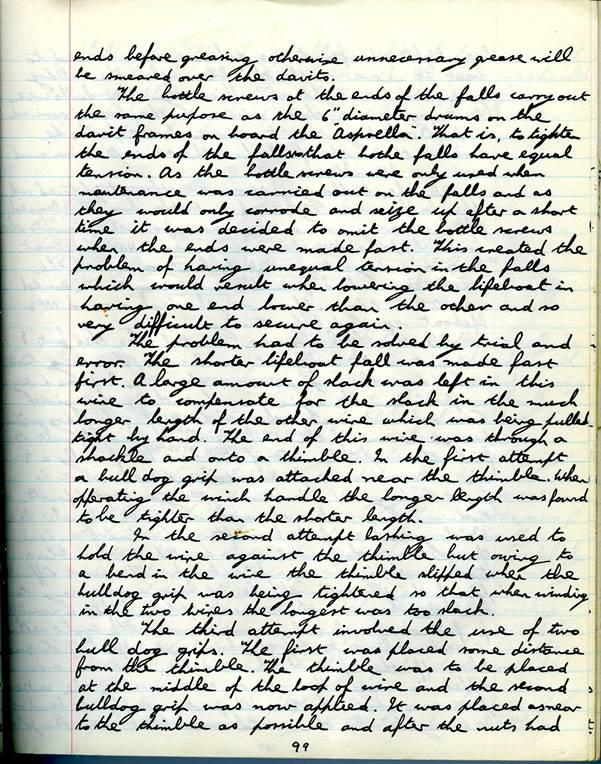 ends before greasing otherwise unnecessary grease will
be smeared over the davits.
The bottle screws at the ends of the falls carry out
the same pupose as the 6" diameter drums on the
davit frames on board the "Asprella". That is, to tighten
the ends of the falls so that bothe falls have equal
tension. As the bottle screws were only used when
maintenance was carried out on the falls and as
they would only corrode and seize up after a short
time it was decided to omit the bottle screws
when the ends were made fast. This created the
problem of having unequal tension in the falls
which would result when lowering the lifeboat in
having one end lower than the other and so
very difficult to secure again.
The problem had to be solved by trial and
error. The shorter lifeboat fall was made fast
first. A large amount of slack was left in this
wire to compensate for the slack in the much
longer length of the other wire which was being pulled
tight by hand. The end of this wire was through a
shackle and onto a thimble. In the first attempt
a bull dog grip was attached near the thimble. When
operating the winch handle the longer length was found
to be tighter than the shorter length.
In the second attempt lashing was used to
hold the wire against the thimble but owing to
a bend in the wire the thimble slipped when the
bulldog grip was being tightened so that when winding
in the two wires the longest was too slack.
The third attempt involved the use of two
bull dog grips. The first was placed some distance
from the thimble. The thimble was to be placed
at the middle of the loop of wire and the second
bulldog grip was now applied. It was placed as near
to the thimble as possible and after the nuts had
99